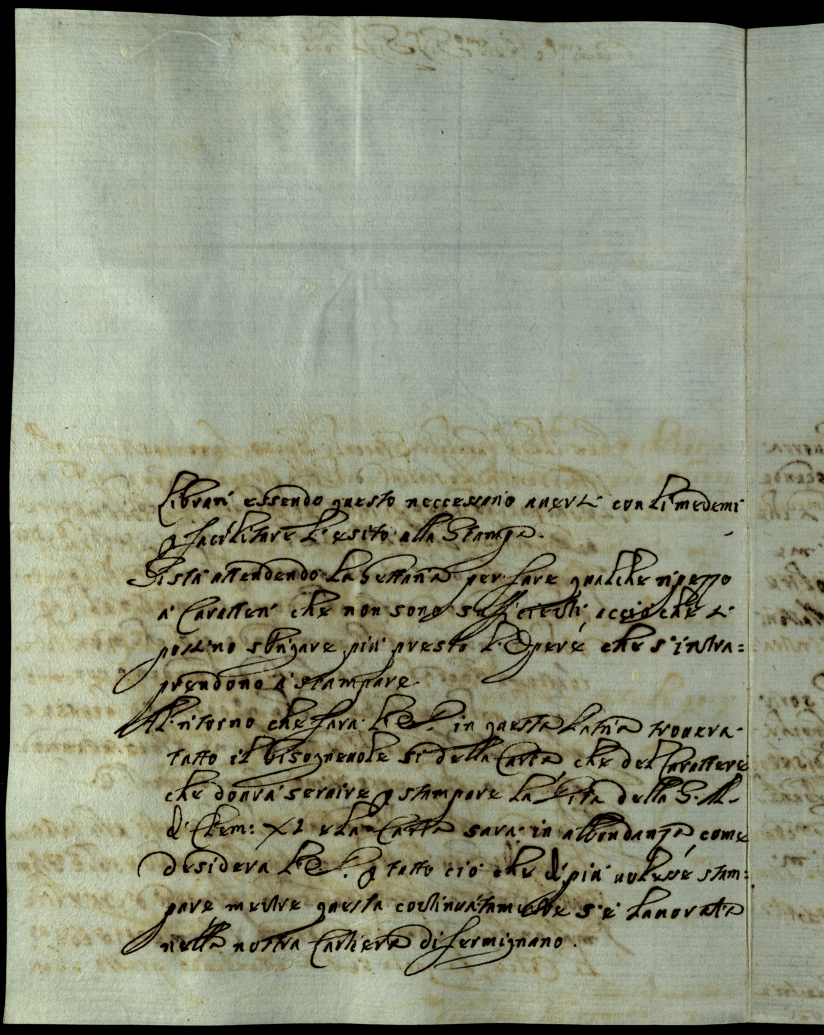 Librari essendo questo neccessario auerli con li medemi
p facilitare l'esito alla Stampa.
Si stà attendendo la per fare qualche n pezzo
di Caratteri che non sono sufficienti, acciò che si
possino sbrigare più presto l'Opere che s'intra=
prendono à stampare.
Al ritorno che farà V.S. in questa Patria trouera
tutto il bisogneuole si della Carta che del Carattere
che dourà seruire p stampare la Vita della S. M.
di Clem: XI e la Carta sarà in abbondanza, come
desidera V.S. p tutto ciò che di più uolesse stam=
pare mentre questa continuatamente s'è lauorata
nella nostra Cartiera di fermignano.